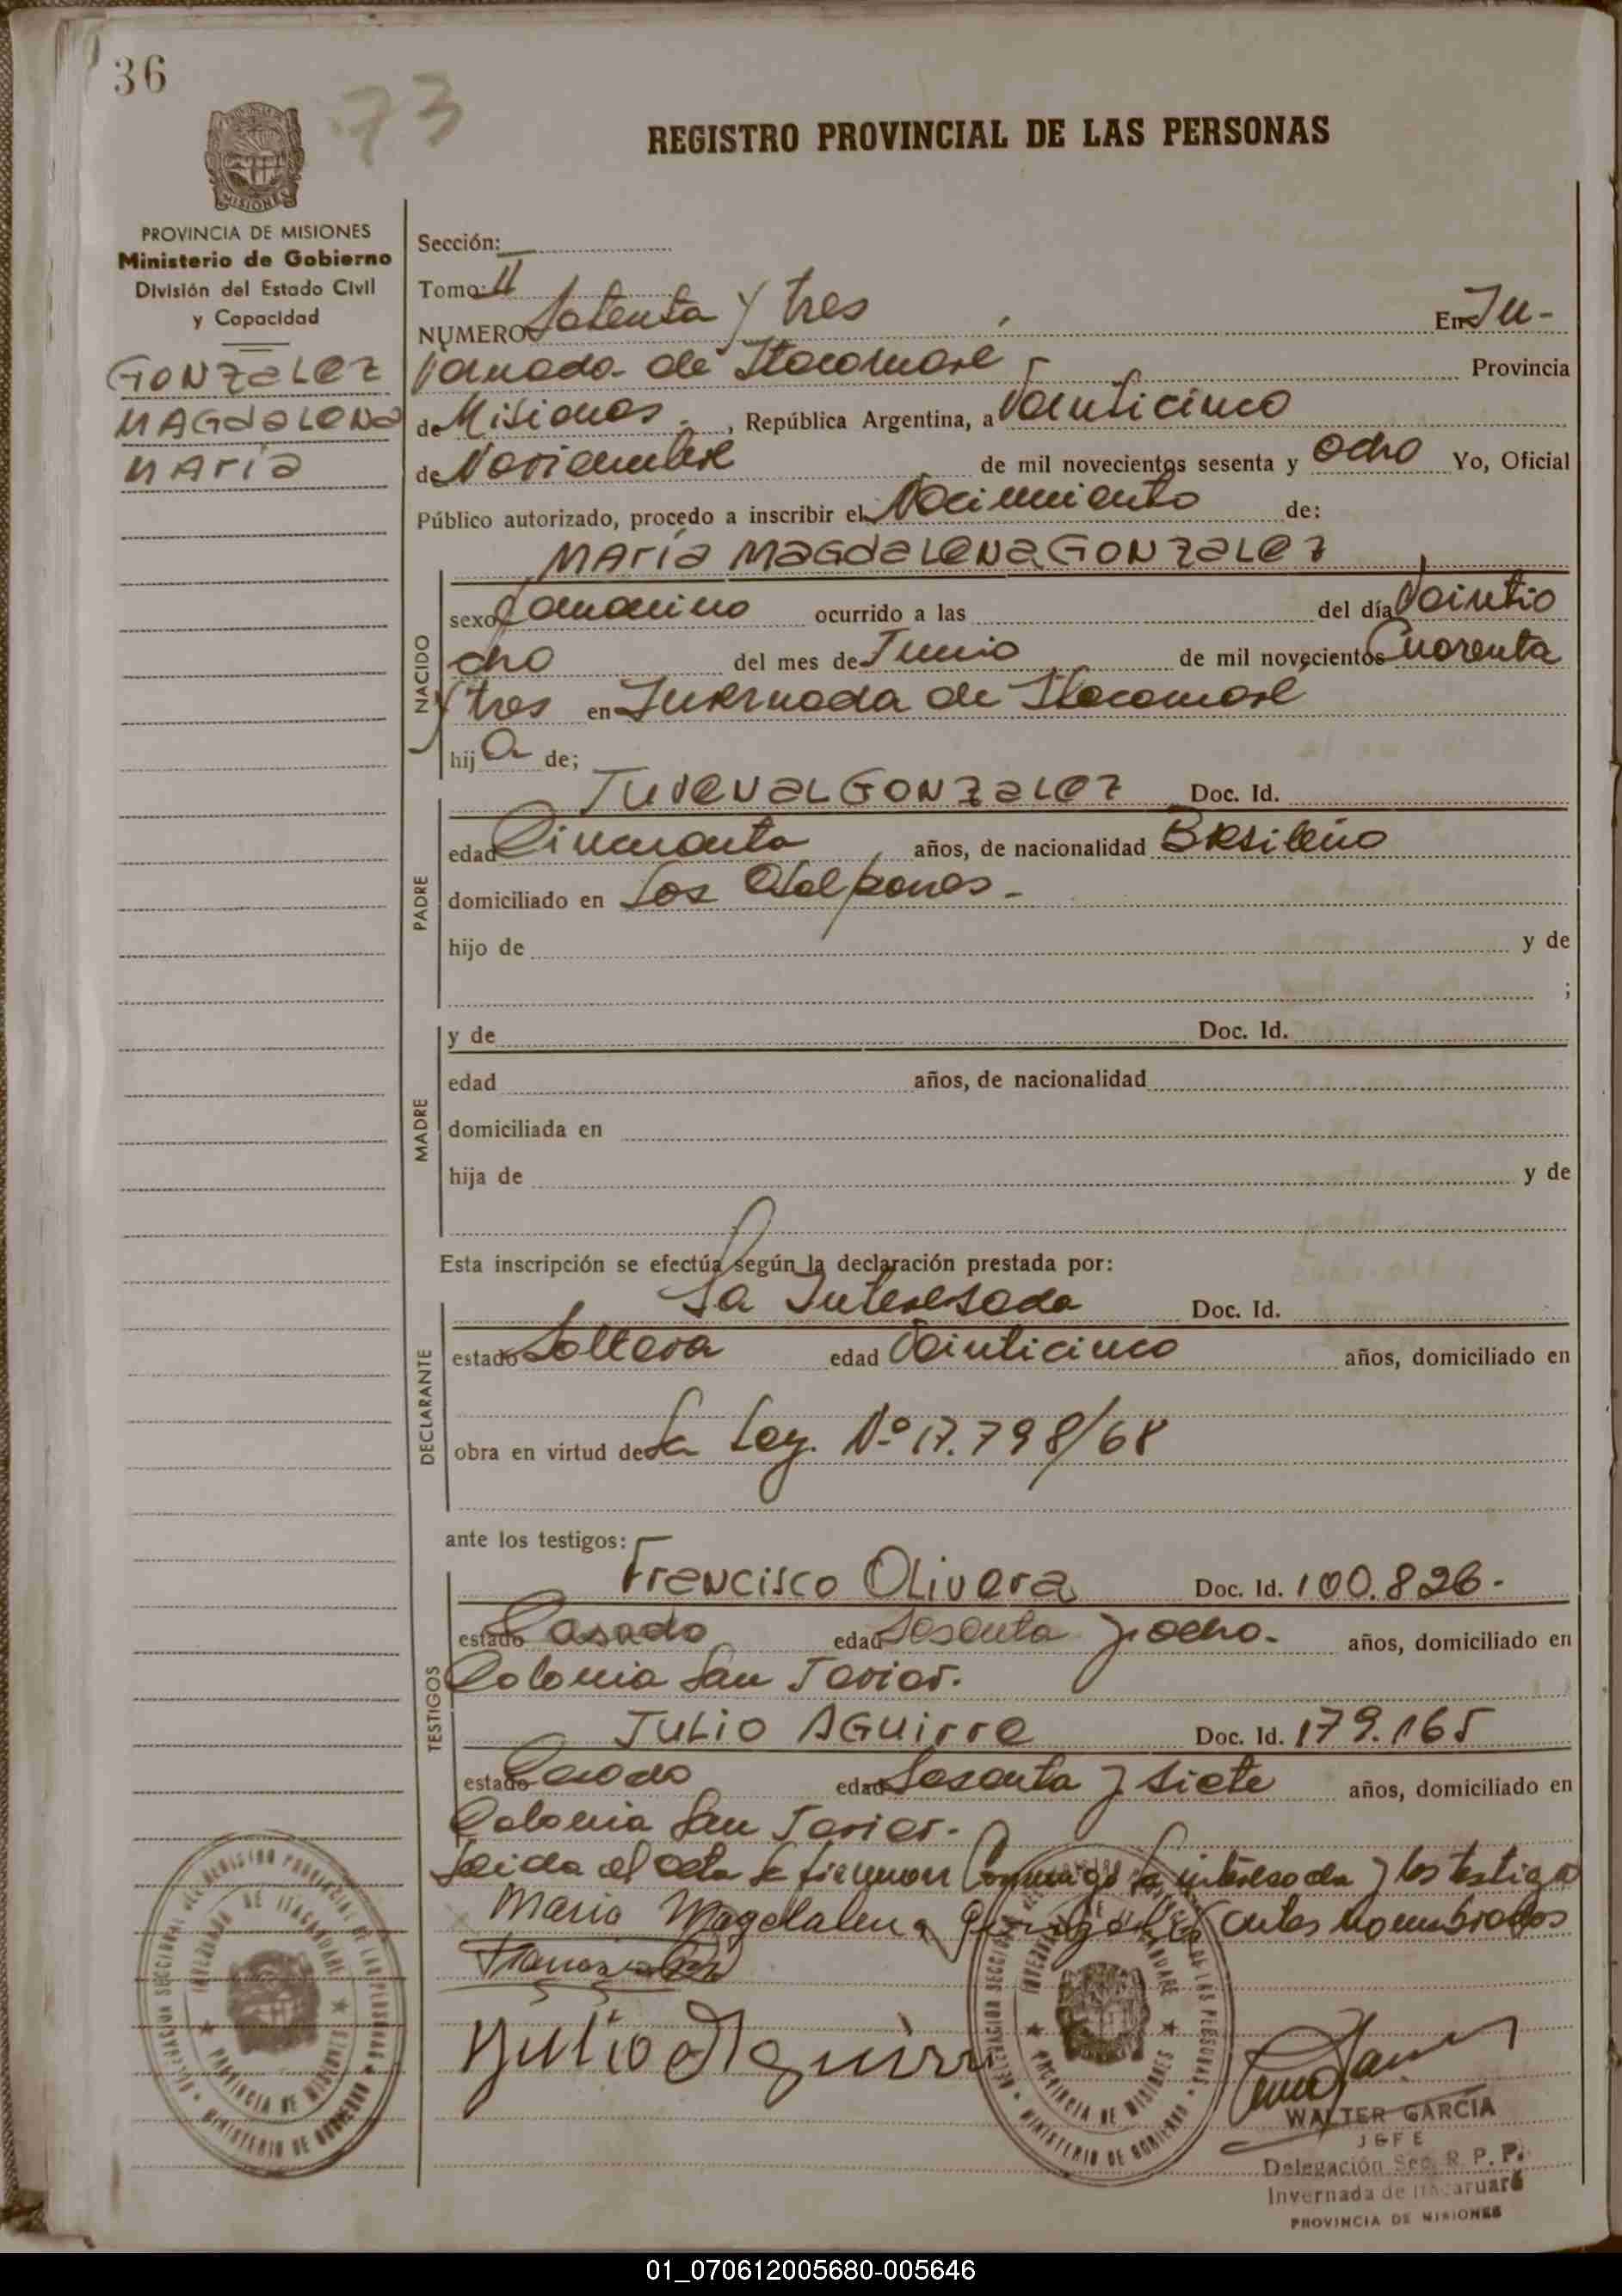 36
73
REGISTRO PROVINCIAL DE LAS PERSONAS
MISIONES
PROVINCIA DE MISIONES
Ministerio de Gobierno
División del Estado Civil
y Capacidad
GONZaLez
MAGdaLeNa
MAría
Sección:
Tomo: II
NUMERO Setenta y tres En In-
vernada de Itacaruare - Provincia
de Misiones , República Argentina, a Veinticinco
de Noviembre de mil novecientos sesenta y ocho Yo, Oficial
Público autorizado, procedo a inscribir el Nacimiento de:
MAría MaGdaLeNa GONZaLez
NACIDO
sexo femenino ocurrido a las del día Veintio
cho del mes de Junio de mil novecientos Cuarenta
y tres en Invernada de Itacaruare
hija de;
PADRE
JuveNaL GONZaLez Doc. Id.
edad Cincuenta años, de nacionalidad Brsileño
domiciliado en Los Galpones -
hijo de y de
;
MADRE
y de Doc. Id.
edad años, de nacionalidad
domiciliada en
hija de y de
Esta inscripción se efectúa según la declaración prestada por:
DECLARANTE
La Interesada Doc. Id.
estado Soltera edad Veinticinco años, domiciliado en
obra en virtud de La Ley. Nº 17.798/68
ante los testigos:
TESTIGOS
FraNcisco OLivera Doc. Id. 100.826.
estado Casado edad Sesenta y ocho - años, domiciliado en
Colonia San Javier.
JULIO AGuirre Doc. Id. 179.165
estado Casado edad Sesenta y siete años, domiciliado en
Colonia San Javier.
Leida el acta la firman Conmigo la interesada y los testigos
Maria Magdalena antes nombrados
Julio Aguirre
WALTER GARCIA
JEFE
Delegación Sec. R. P. P.
Invernada de Itacaruaré
PROVINCIA DE MISIONES
01_070612005680-005646